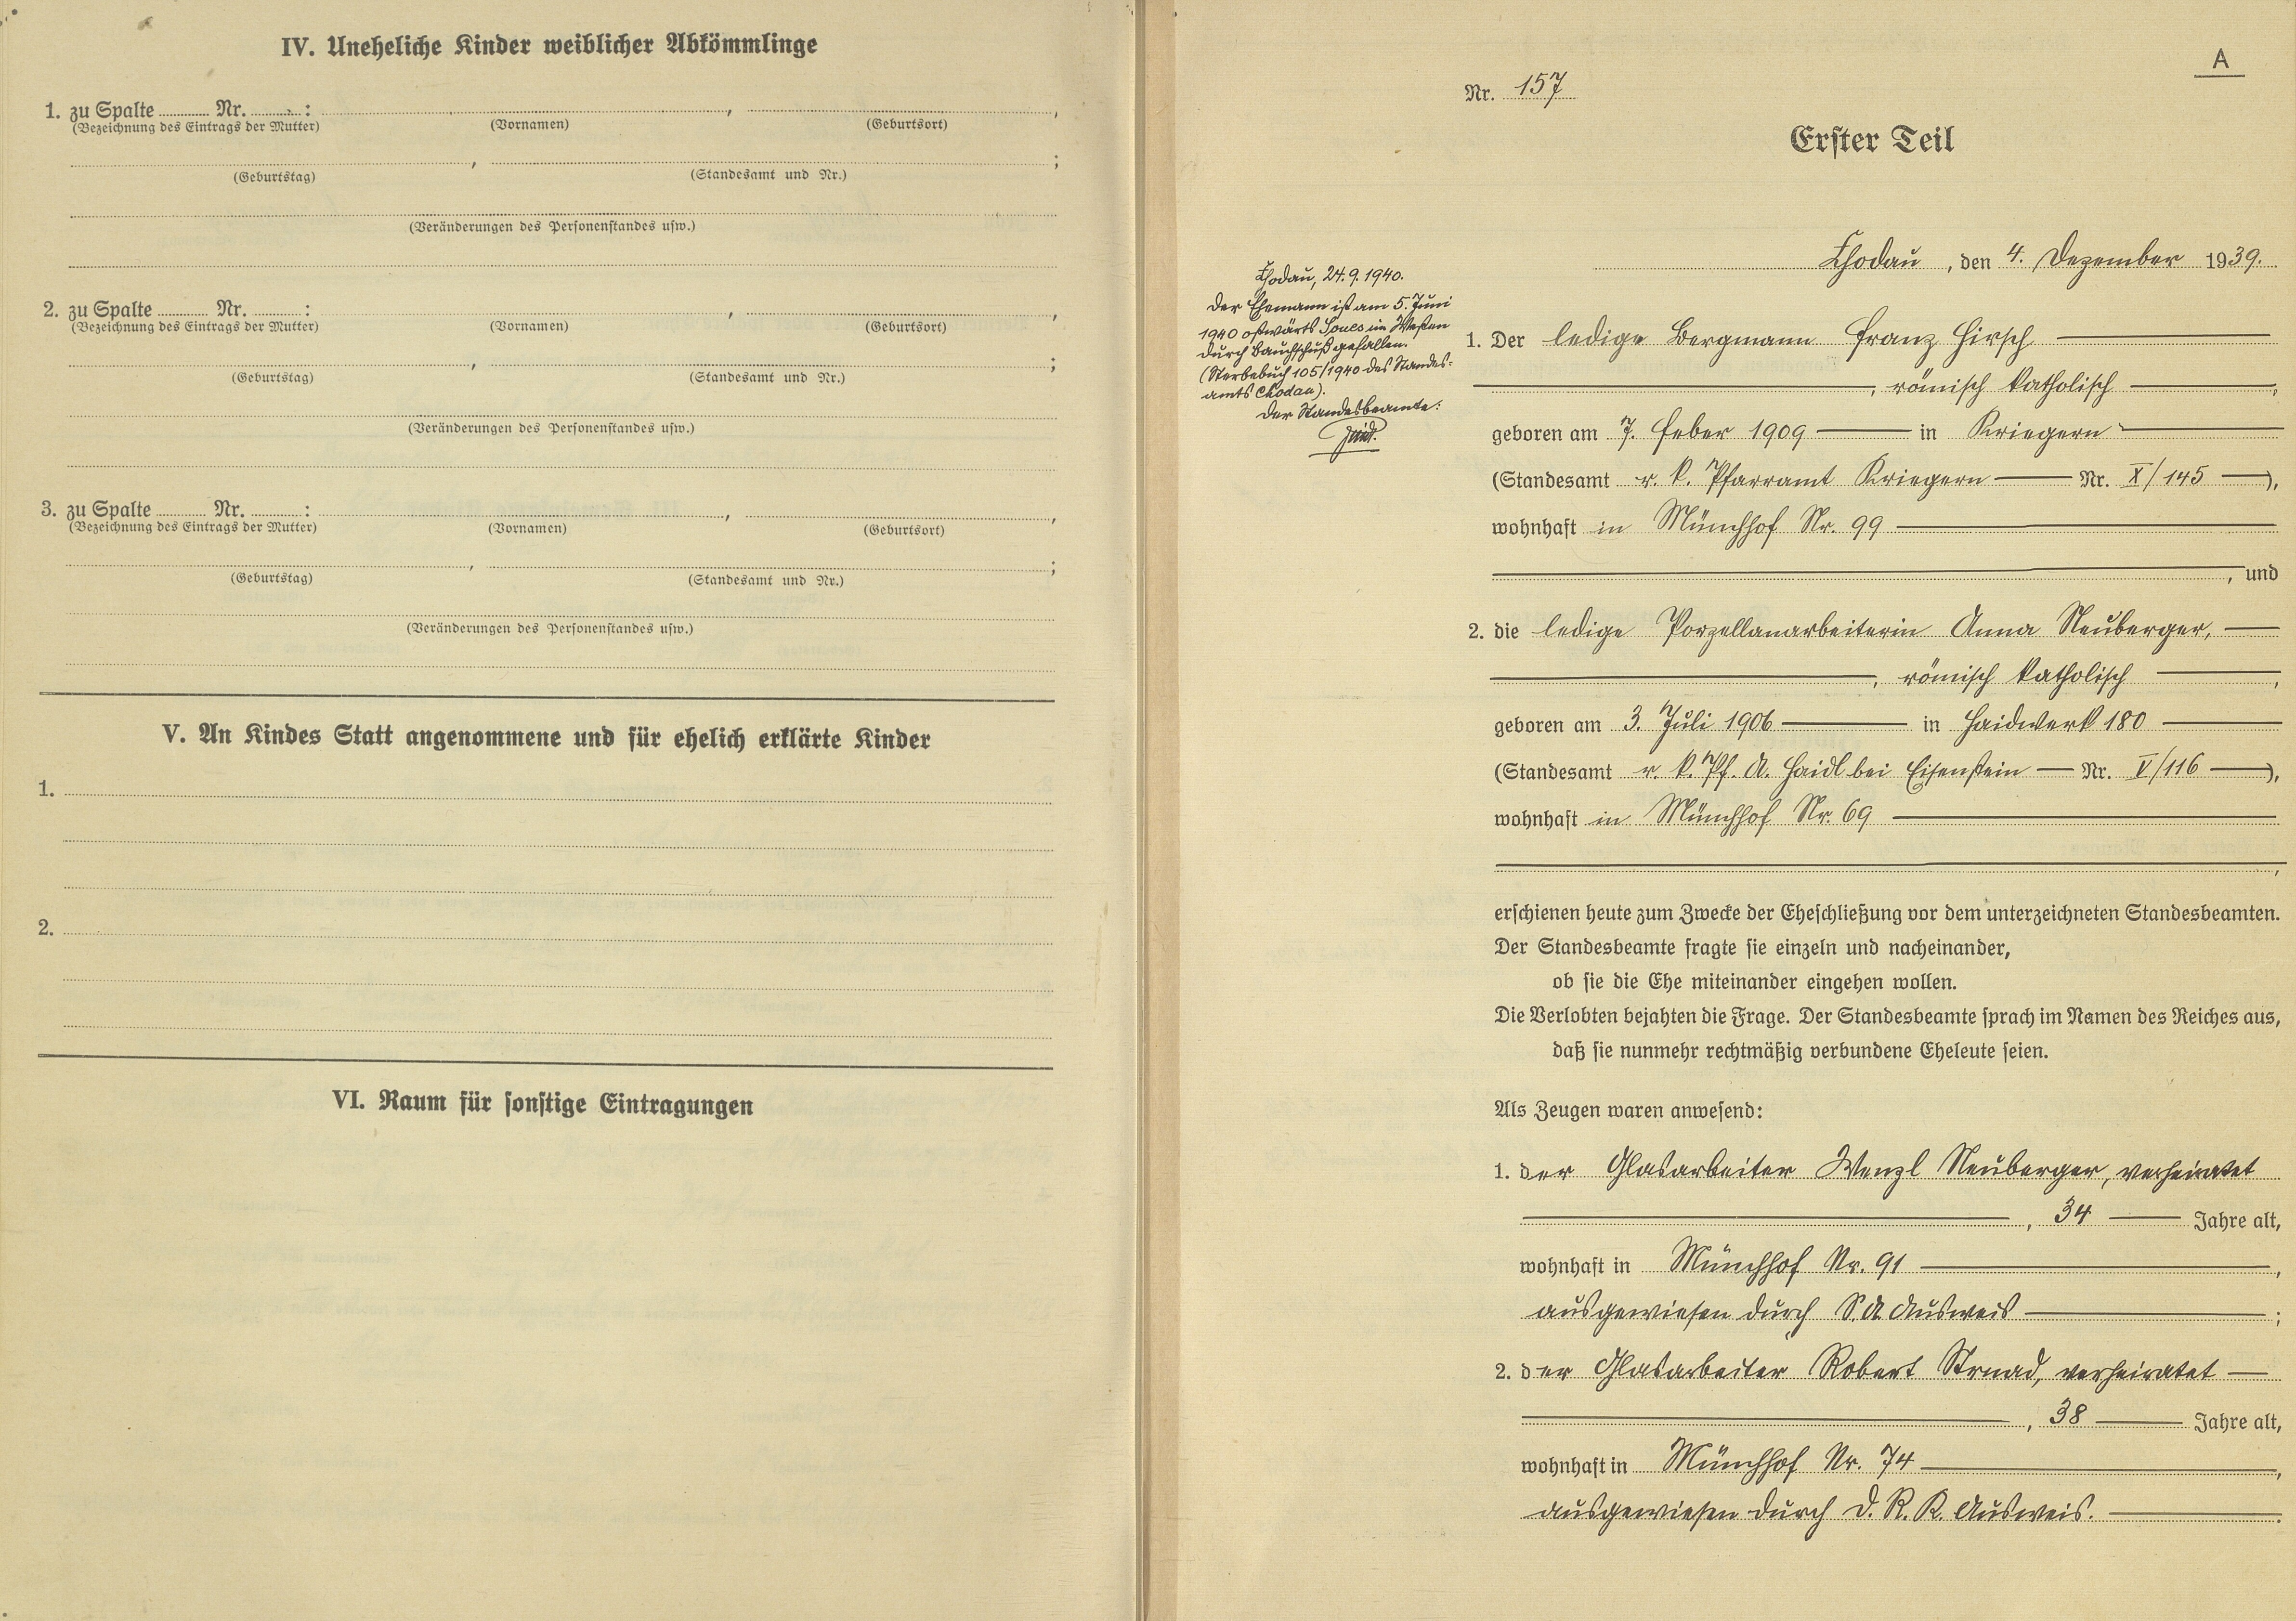 IV. Uneheliche Kinder weiblicher Abkömmlinge
1. zu Spalte ........ Nr. ........ : , ,
(Bezeichnung des Eintrags der Mutter) (Vornamen) (Geburtsort)
, ;
(Geburtstag) (Standesamt und Nr.)
(Veränderungen des Personenstandes usw.)
2. zu Spalte ........ Nr. ........ : , ,
(Bezeichnung des Eintrags der Mutter) (Vornamen) (Geburtsort)
, ;
(Geburtstag) (Standesamt und Nr.)
(Veränderungen des Personenstandes usw.)
3. zu Spalte ........ Nr. ........ : , ,
(Bezeichnung des Eintrags der Mutter) (Vornamen) (Geburtsort)
, ;
(Geburtstag) (Standesamt und Nr.)
(Veränderungen des Personenstandes usw.)
V. An Kindes Statt angenommene und für ehelich erklärte Kinder
1.
2.
VI. Raum für sonstige Eintragungen
A
Nr. 157
Erster Teil
Chodau, den 4. Dezember 1939.
Chodau, 24.9.1940.
Der Ehemann ist am 5. Juni
1940 ostwärts im Westen
durch Bauchschuß gefallen.
(Sterbebuch 105/1940 des Standes-
amts Chodau).
Der Standesbeamte:
1. Der ledige Bergmann Franz Hirsch
, römisch katholisch ,
geboren am 7. Feber 1909 in Kriegern
(Standesamt r. k. Pfarramt Kriegern Nr. X/145 ),
wohnhaft in Münchhof Nr. 99
, und
2. die ledige Porzellanarbeiterin Anna Neuberger,
, römisch katholisch ,
geboren am 3. Juli 1906 in Haidwerk 180
(Standesamt r. k. Pf. A. Haidl bei Eisenstein Nr. V/116 ),
wohnhaft in Münchhof Nr. 69
,
erschienen heute zum Zwecke der Eheschließung vor dem unterzeichneten Standesbeamten.
Der Standesbeamte fragte sie einzeln und nacheinander,
ob sie die Ehe miteinander eingehen wollen.
Die Verlobten bejahten die Frage. Der Standesbeamte sprach im Namen des Reiches aus,
daß sie nunmehr rechtmäßig verbundene Eheleute seien.
Als Zeugen waren anwesend:
1. der Glasarbeiter Wenzl Neuberger, verheiratet
, 34 Jahre alt,
wohnhaft in Münchhof Nr. 91 ,
ausgewiesen durch S.A. Ausweis ;
2. der Glasarbeiter Robert Strnad, verheiratet
, 38 Jahre alt,
wohnhaft in Münchhof Nr. 74 ,
ausgewiesen durch D. R. K. Ausweis. .